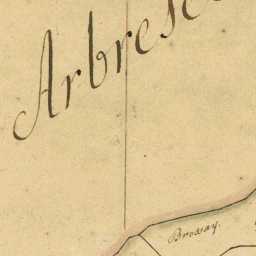 Arbresle
Brossay.